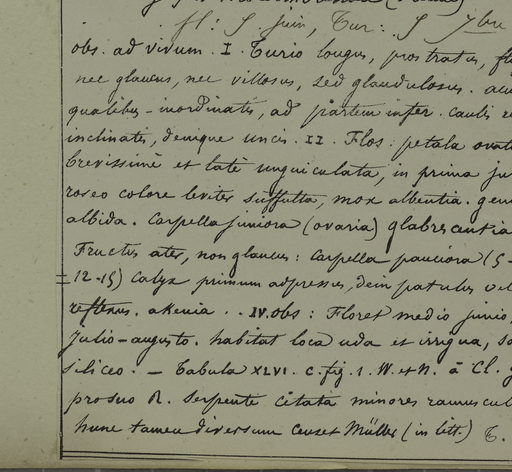 fl: 5 juin, Tur: 5 7bre
obs. ad vivum. I. Turio longus, prostratus,
nec glaucus, nec villosus, sed glandulosus.
qualibus-inordinatis, ad partem infer. caulis
inclinatis, denique uncis. II. Flos: petala
brevissimè et latè unguiculata, in prima
roseo colore leviter suffulta, mox albentia.
albida. Carpella juniora (ovaria)
Fructus ater, non glaucus: Carpella pauciora (5-
12-15) Calyx primum adpressus, dein patulus
reflexus. akenia. . IV. obs: Floret medio junio,
Julio-augusto. habitat loca uda et irrigua,
siliceo. — Tabula XLVI. c. fig. 1. W. et N. à Cl.
pro suo R. Serpente citata minores
hunc tamen diversum censet Müller (in litt.) T.